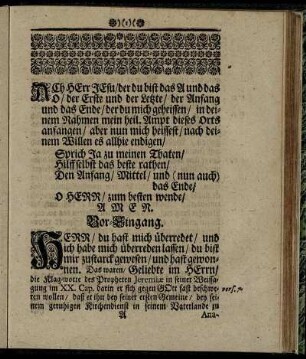 ACh HErr JEsu/ der du bist das A und das
O/ der Erste und der Letzte/ der Anfang
und das Ende/ der du mich geheissen/ in dei-
nem Nahmen mein heil. Ampt dieses Orts
anfangen/ aber nun mich heissest/ nach dei-
nem Willen es allhie endigen/
Sprich Ja zu meinen Thaten/
Hilff selbst das beste rathen;
Den Anfang/ Mittel/ und (nun auch)
das Ende/
O HERR/ zum besten wende/
A M E N.
Vor-Eingang.
HERR/ du hast mich überredet/ und
ich habe mich überreden lassen/ du bist
mir zustarck gewesen/ und hast gewon-
nen. Das waren/ Geliebte im HErrn/
die Klag-worte des Propheten Jeremiæ in seiner Weissa-
gung im XX. Cap. darin er sich gegen GOtt fast beschwe-
ren wollen/ daß er ihn bey seiner ersten Gemeine/ bey sei-
nem geruhigen Kirchendienst in seinem Vaterlande zu
vers. 7.
A
Ana-